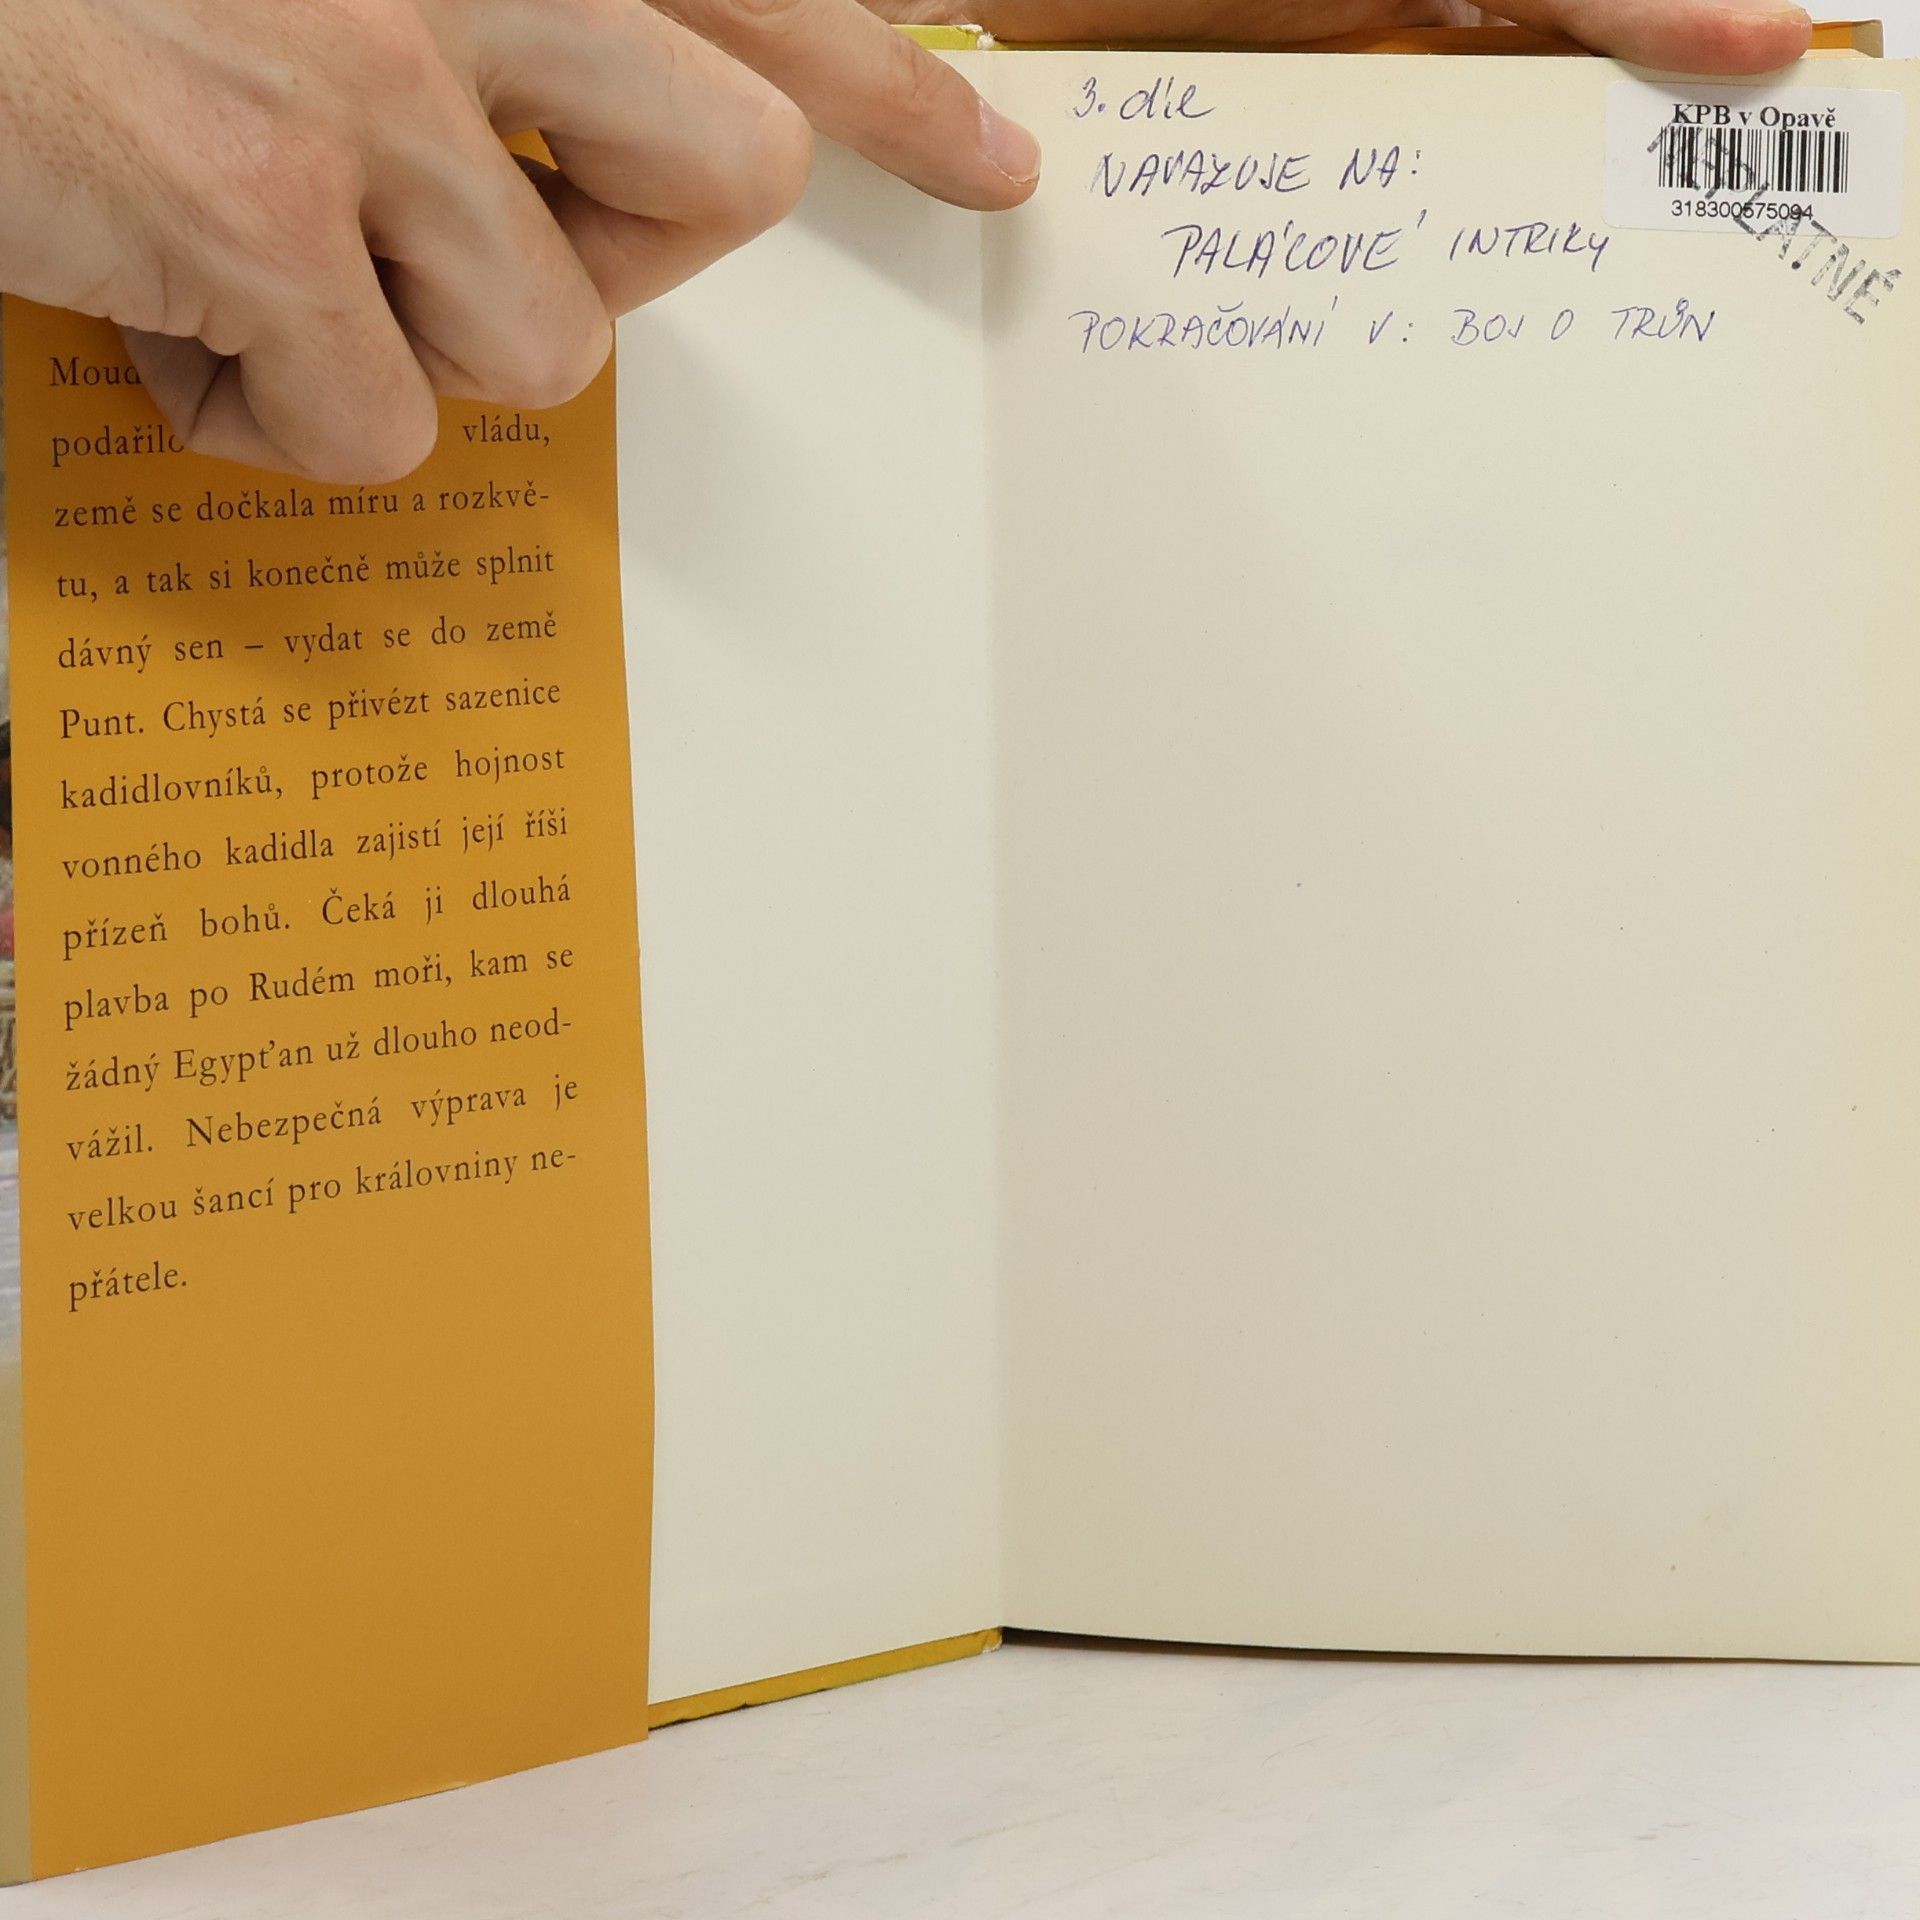 podařilo vládu,
země se dočkala míru a rozkvě-
tu, a tak si konečně může splnit
dávný sen – vydat se do země
Punt. Chystá se přivézt sazenice
kadidlovníků, protože hojnost
vonného kadidla zajistí její říši
přízeň bohů. Čeká ji dlouhá
plavba po Rudém moři, kam se
žádný Egypťan už dlouho neod-
vážil. Nebezpečná výprava je
velkou šancí pro královniny ne-
přátele.
3. díl
NAVAZUJE NA:
PALÁCOVÉ INTRIKY
POKRAČOVÁNÍ V: BOJ O TRŮN
KPB v Opavě
318300575094
NEPLATNÉ